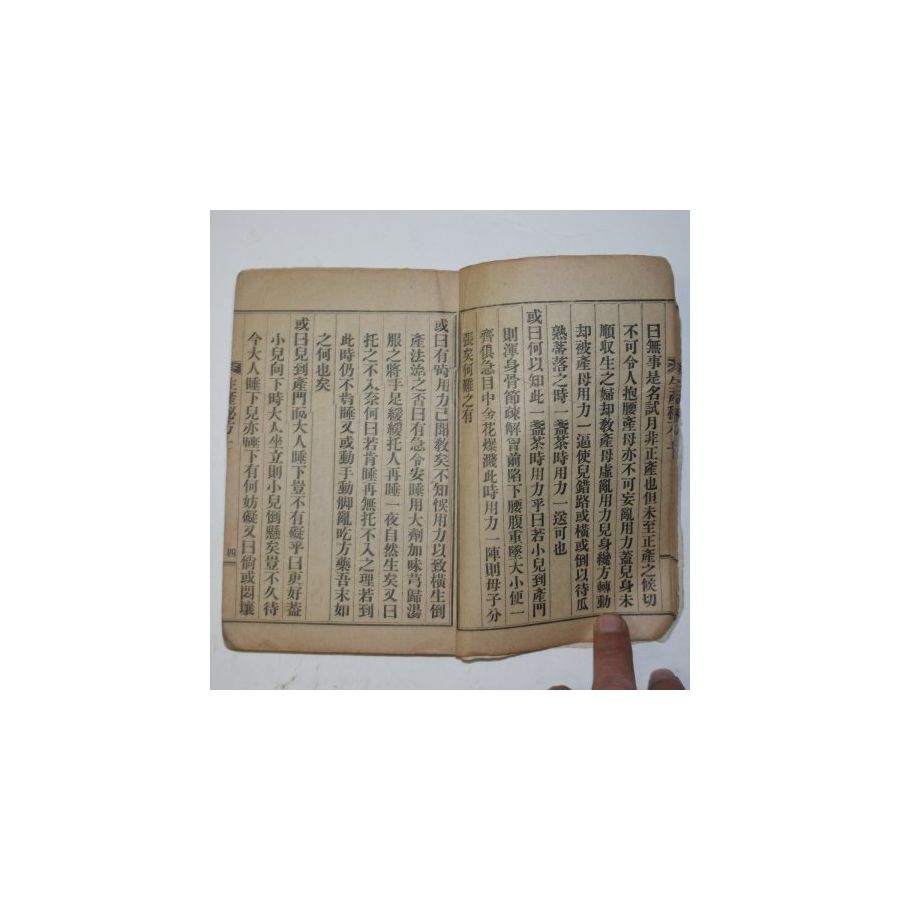 日無事是名試月非正產也但未至正產之候切
不可令人抱腰產母亦不可妄亂用力蓋兒身未
順收生之婦却教產母虛亂用力兒身纔方轉動
却被產母用力一逼使兒錯路或橫或倒以待瓜
熟蒂落之時一盞茶時用力一送可也
或曰何以知此一盞茶時用力乎曰若小兒到產門
則渾身骨節疎解胷前陷下腰腹重墜大小便一
齊俱急目中金花爆濺此時用力一陣則母子分
張矣何難之有
或曰有時用力已開教矣不知悞用力以致橫生倒
產法治之否曰有急令安睡用大劑加味芎歸湯
服之將手足緩緩托人再睡一夜自然生矣又曰
托之不入奈何曰若肯睡再無托不入之理若到
此時仍不肯睡又或動手動脚亂吃方藥吾末如
之何也矣
或曰兒到產門而大人睡下豈不有礙乎曰更好蓋
小兒向下時大人坐立則小兒倒懸矣豈不久待
今大人睡下兒亦睡下有何妨礙又曰倘或悶壞
生產秘方
四